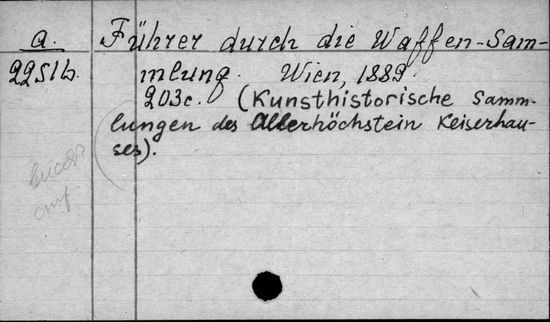 a. Führer durch die Waffen-Sam-
2251b. mlung. Wien, 1889.
203c. (Kunsthistorische Samm-
lungen des Allerhöchstein Keiserhau-
ses).